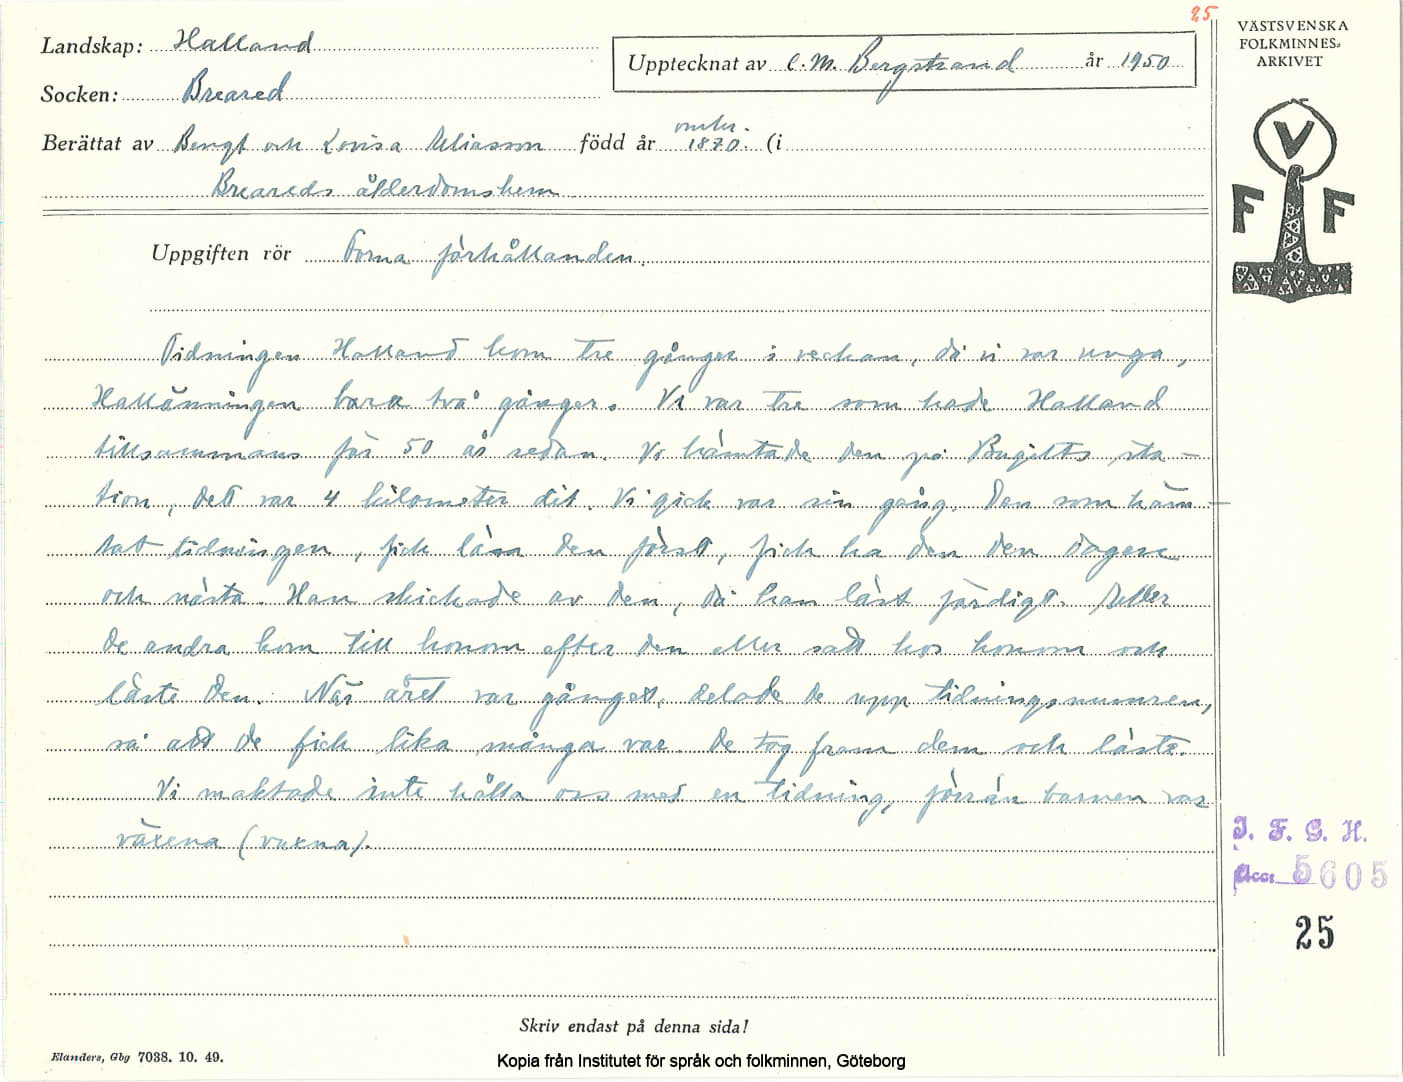 25
Landskap: Halland
Upptecknat av C. M. Bergstrand år 1950
VÄSTSVENSKA
FOLKMINNES-
ARKIVET
Socken: Breared
Berättat av Bengt och Lovisa Eliasson född år omkr. 1870. (i
Breareds ålderdomshem
V
F F
Uppgiften rör Forna förhållanden.
Tidningen Halland kom tre gånger i veckan, då vi var unga,
Hallänningen bara två gånger. Vi var tre som hade Halland
tillsammans för 50 år sedan. Vi hämtade den på sta-
tion, det var 4 kilometer dit. Vi gick var sin gång. Den som häm-
tat tidningen, fick läsa den först, fick ha den den dagen
och nästa. Han skickade av den, då han läst färdigt. Eller
de andra kom till honom efter den eller satt hos honom och
läste den. När året var gånget, delade de upp tidningsnumren,
så att de fick lika många var. De tog fram dem och läste.
Vi maktade inte hålla oss med en tidning, förrän barnen var
växena (vuxna).
I. F. G. H.
Acc. 5605
25
Skriv endast på denna sida!
Elanders, Gbg 7038. 10. 49.
Kopia från Institutet för språk och folkminnen, Göteborg